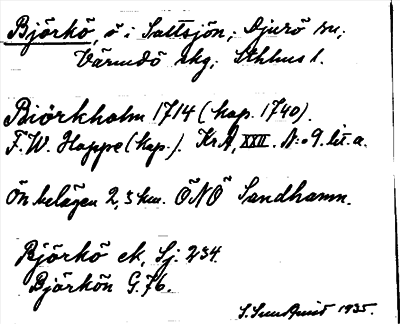 Björkö, ö i Saltsjön; Djurö sn;
Värmdö skg; Sthlms l.
Biörkholm 1714 (kop. 1740).
F. W. Hoppe (kop.). KrA, XXII. N:o 9. lit. a.
Ön belägen 2,5 km. ÖNÖ Sandhamn.
Björkö ek, Sj. 234.
Björkön G. 76.
1935.